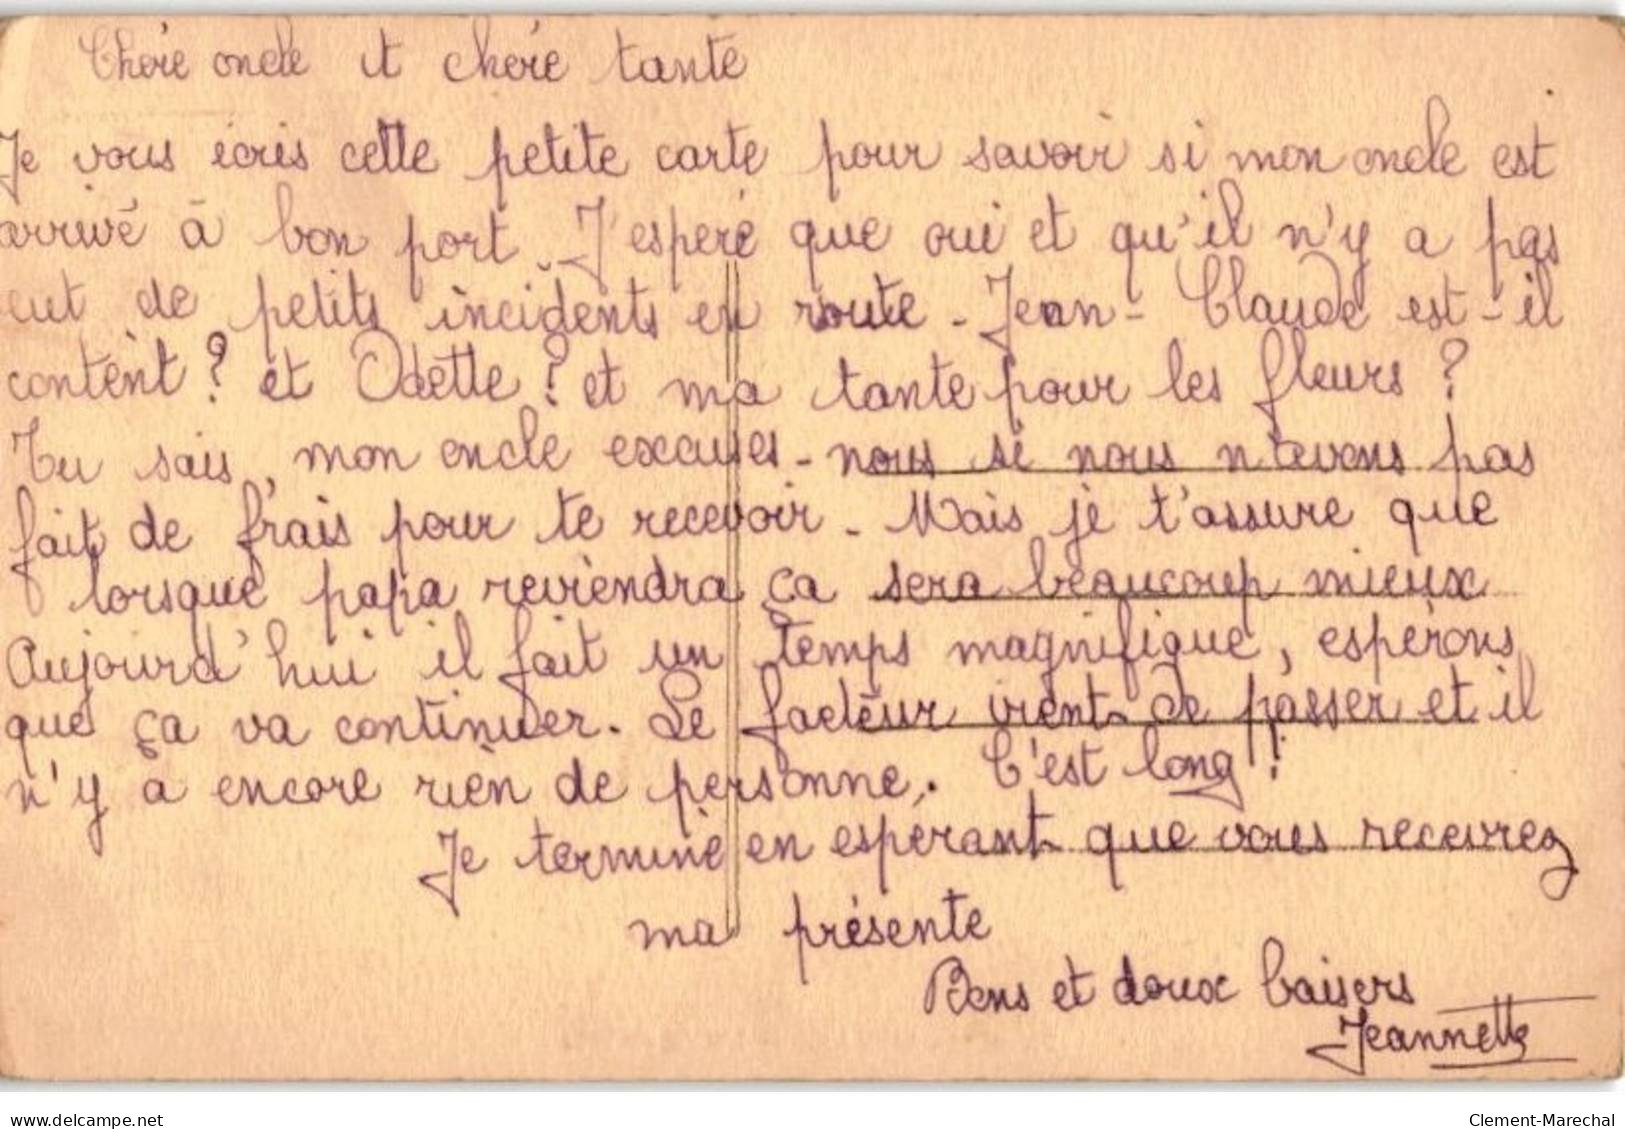 Chère oncle et chère tante
Je vous écris cette petite carte pour savoir si mon oncle est
arrivé à bon port. J'espère que oui et qu'il n'y a pas
eut de petits incidents en route - Jean-Claude est-il
content ? et Odette ? et ma tante pour les fleurs ?
Tu sais, mon oncle excuses-nous si nous n'avons pas
fait de frais pour te recevoir - Mais je t'assure que
lorsque papa reviendra ça sera beaucoup mieux
Aujourd'hui il fait un temps magnifique, espérons
que ça va continuer. Le facteur vient de passer et il
n'y à encore rien de personne. C'est long !
Je termine en espérant que vous recevrez
ma présente
Bons et doux baisers
Jeannette
delcampe.net
Clement-Marechal